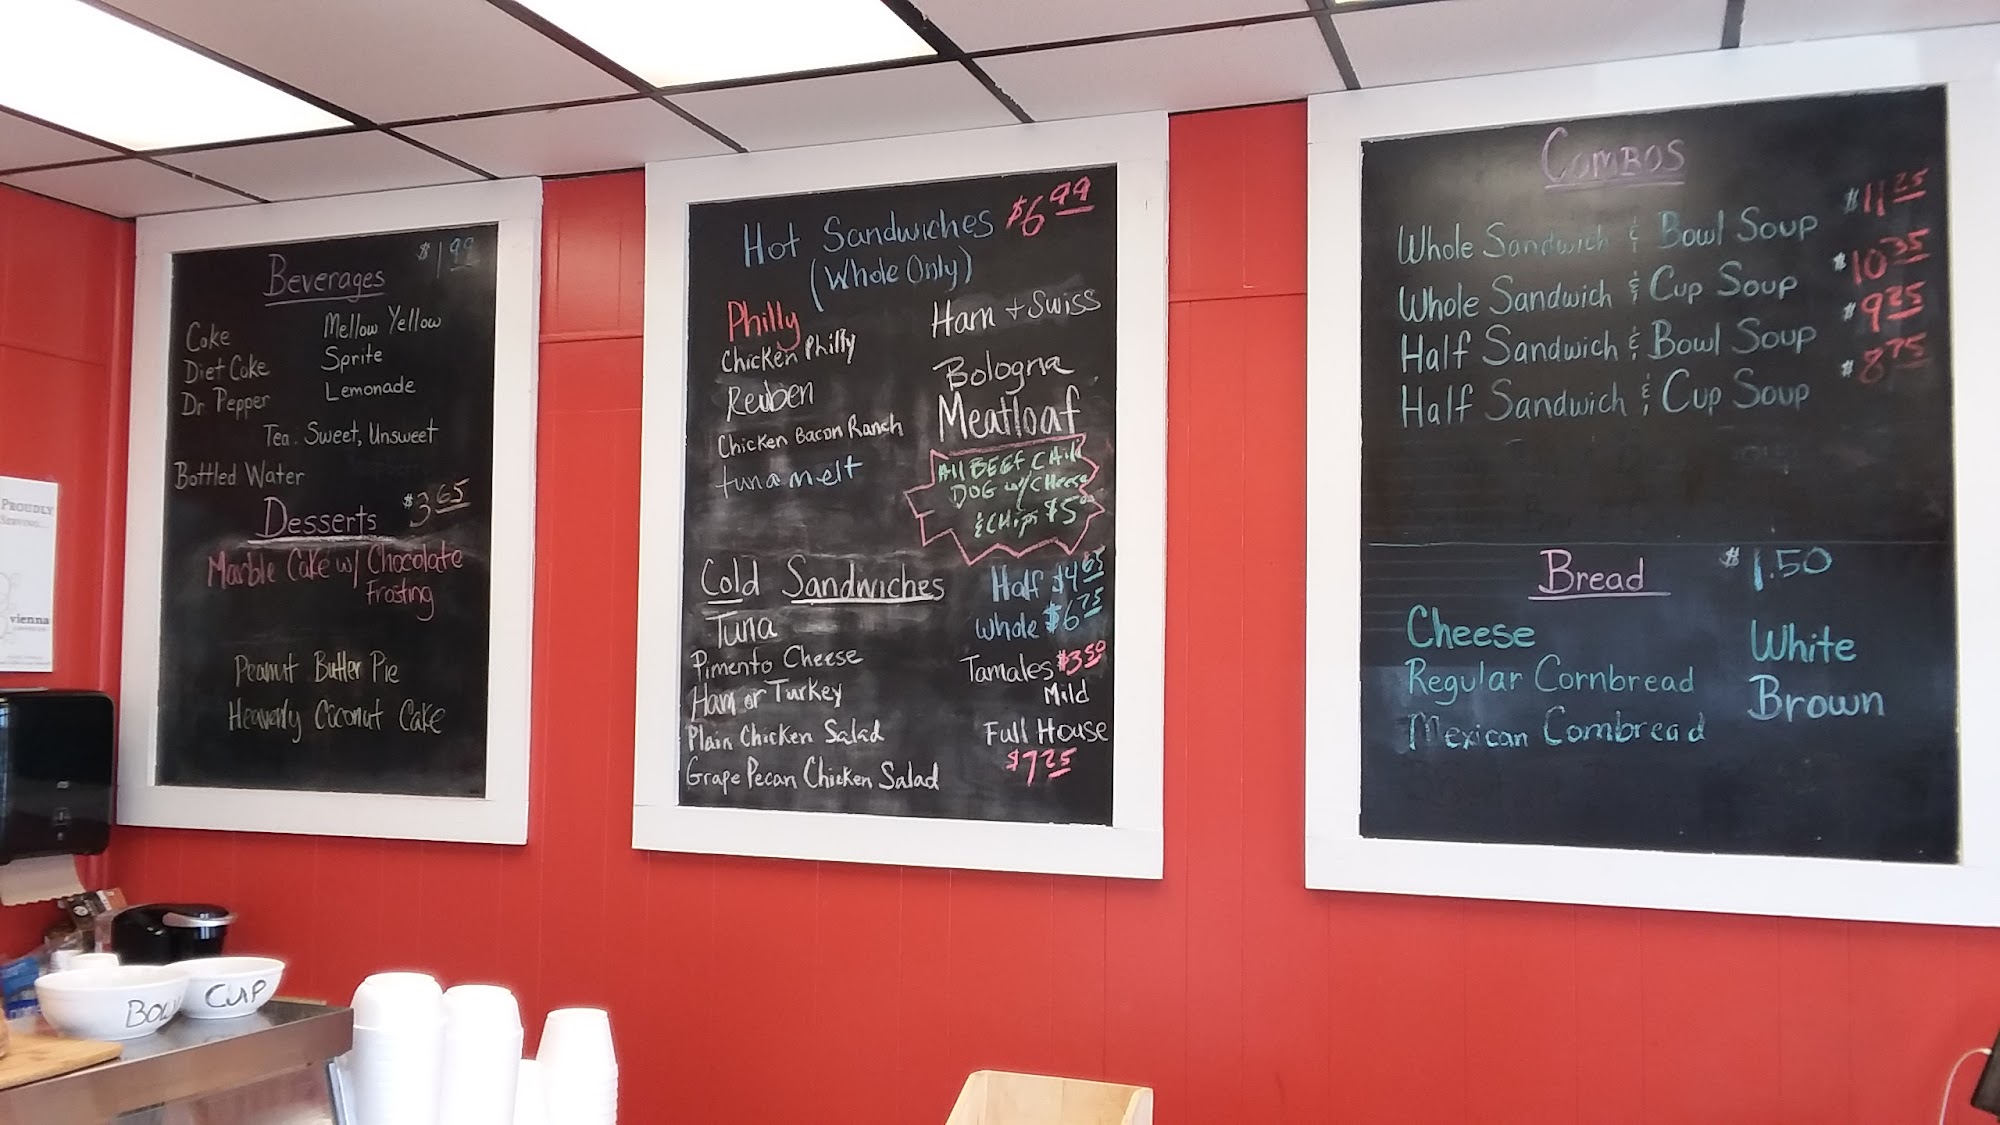 Beverages $1.99
Coke
Diet Coke
Dr Pepper
Mellow Yellow
Sprite
Lemonade
Tea: Sweet, Unsweet
Bottled Water
Desserts $3.65
Marble Cake w/ Chocolate
Frosting
Peanut Butter Pie
Heavenly Coconut Cake
Hot Sandwiches $6.99
(Whole Only)
Philly
Chicken Philly
Reuben
Chicken Bacon Ranch
tuna melt
Ham + Swiss
Bologna
Meatloaf
All BEEF CHili
DOG w/ CHeese
& CHips $5.00
Cold Sandwiches
Tuna
Pimento Cheese
Ham or Turkey
Plain Chicken Salad
Grape Pecan Chicken Salad
Half $4.65
Whole $6.75
Tamales $3.50
Mild
Full House
$7.25
Combos
Whole Sandwich & Bowl Soup $11.25
Whole Sandwich & Cup Soup $10.35
Half Sandwich & Bowl Soup $9.25
Half Sandwich & Cup Soup $8.75
Bread $1.50
Cheese
Regular Cornbread
Mexican Cornbread
White
Brown
PROUDLY
SERVING...
vienna
BOWL
CUP